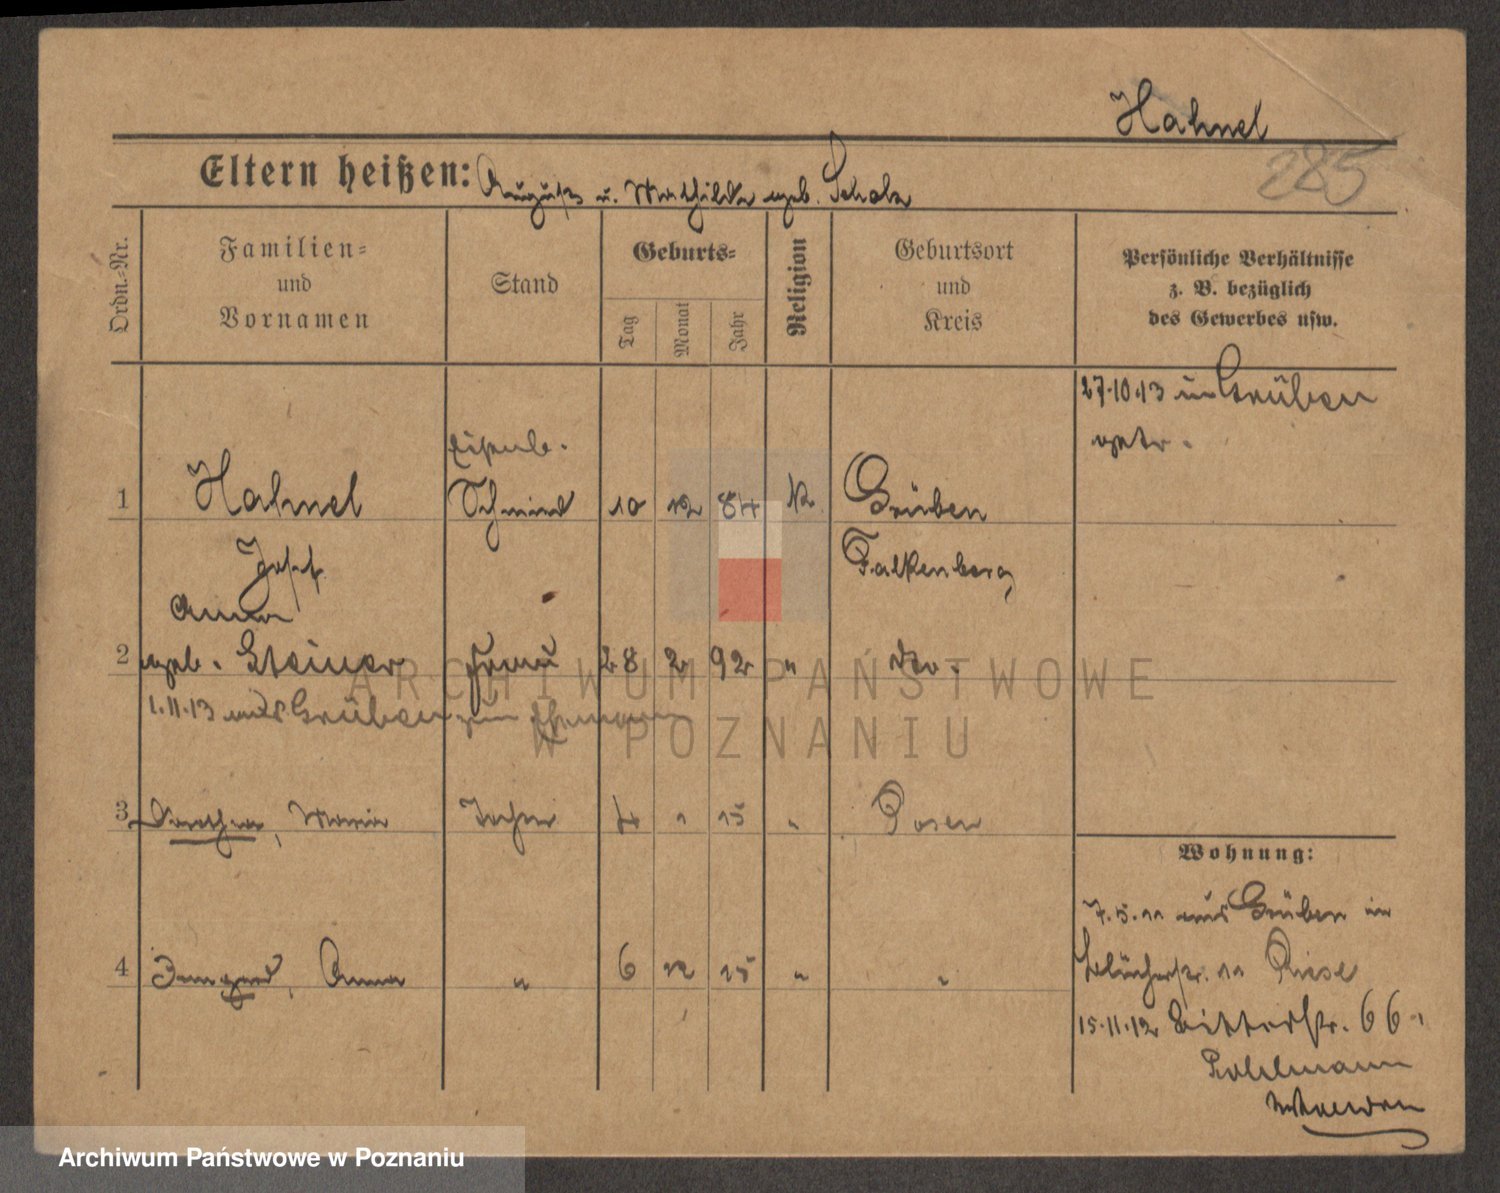 Hahnel
285
Eltern heißen: August u. Mathilde geb. Scholz
Ordn.-Nr.
Familien-
und
Vornamen
Stand
Geburts-
Tag
Monat
Jahr
Religion
Geburtsort
und
Kreis
Persönliche Verhältnisse
z. B. bezüglich
des Gewerbes usw.
27.10.13 in Grüben
getr.
Eisenb.
1 Hahnel Schmied 10 12 84 K Grüben
Josef Falkenberg
Anna
2 geb. Steiner Frau 28 2 92 " do.
1.11.13 aus Grüben zum Ehemann
3 Dorothea, Maria Tochter 4 1 15 " Posen
4 Irmgard, Anna " 6 12 15 " "
Wohnung:
7.5.11 aus Grüben in
Blücherstr. 11 Riese
15.11.12 Ritterstr. 66
Pohlmann
ARCHIWUM PAŃSTWOWE
W POZNANIU
Archiwum Państwowe w Poznaniu